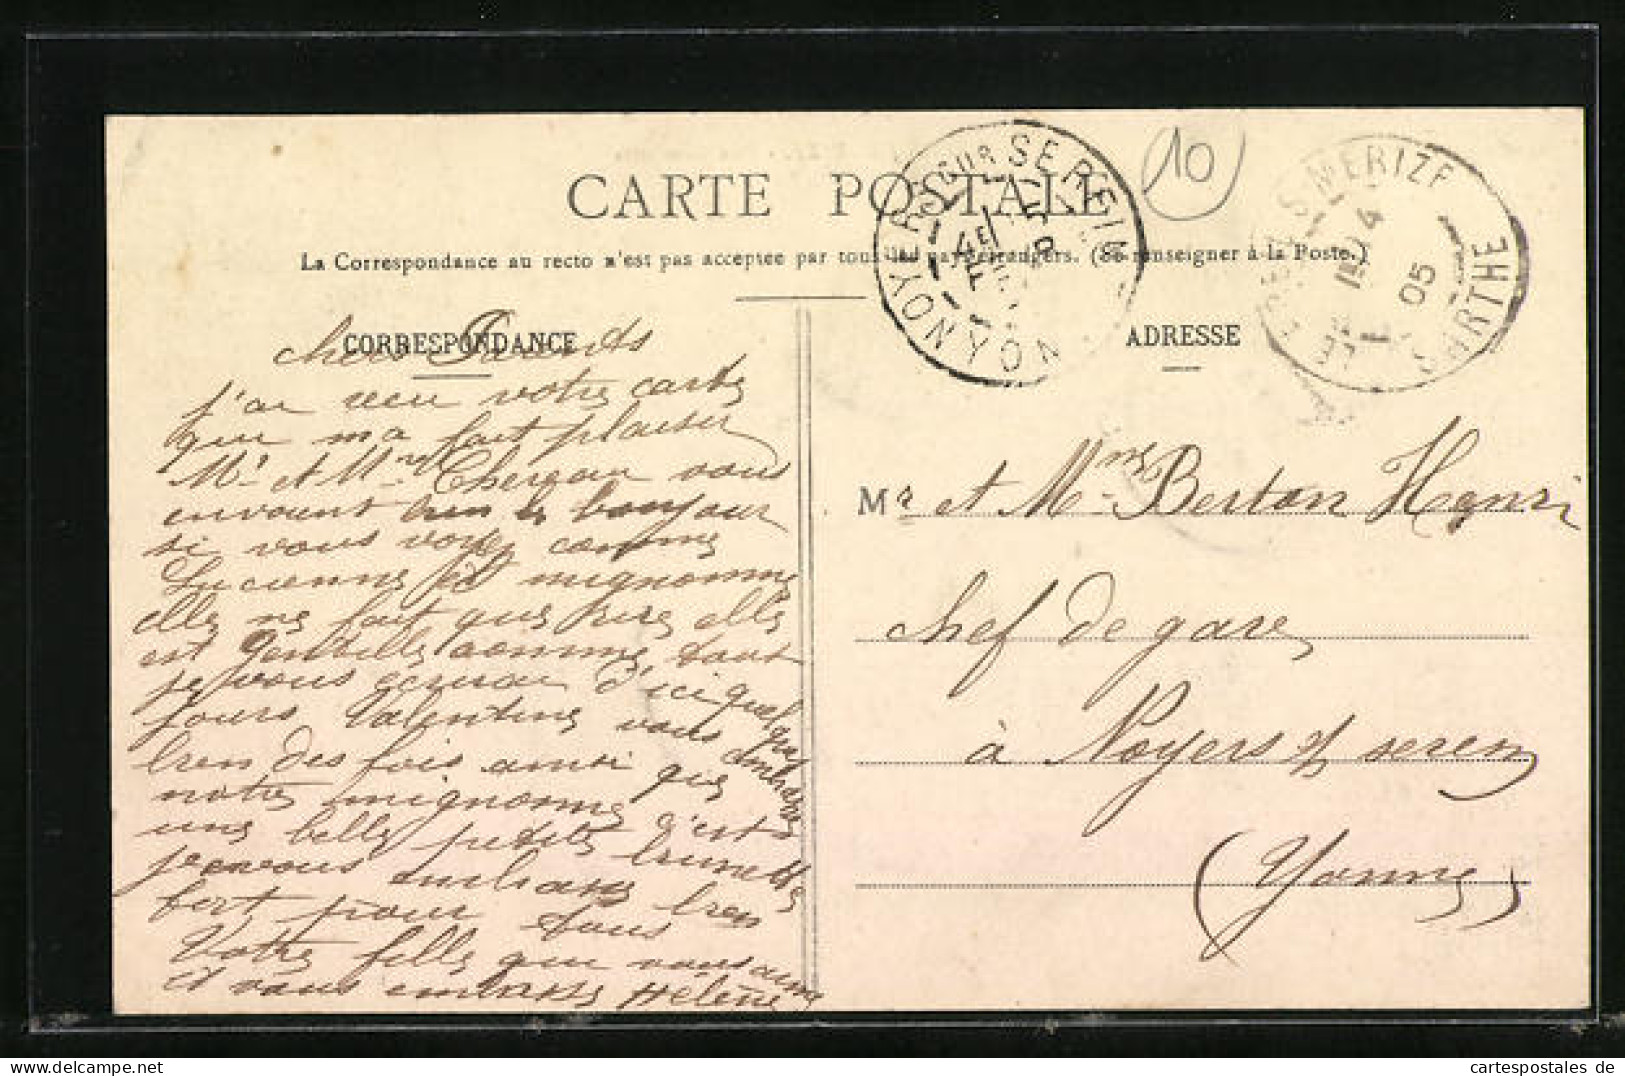 CARTE POSTALE
La Correspondance au recto n'est pas acceptée par tous les pays étrangers. (Se renseigner à la Poste.)
CORRESPONDANCE
ADRESSE
10
NOYERS SUR SEREIN
YONNE
S MERIZE
SARTHE
14
05
chers Parents
j'ai recu votre carte
qui ma fait plaisir
Mr et Mme Chereau vous
envoient bien le bonjour
si vous voyez comme
Lucienne et mignonne
elle ne fait que rire elle
est gentille comme tout
je vous ecrirai d'ici quelque
jours Valentine vous embrasse
bien des fois ainsi que
notre mignonne c'est
une belle petite brunette
je vous embrasse bien
fort pour tous
Votre fille qui vous aime
et vous embrasse Hélène
Mr et Mme Berton Henri
chef de gare
à Noyers s/ serein
(Yonne)
cartespostales de